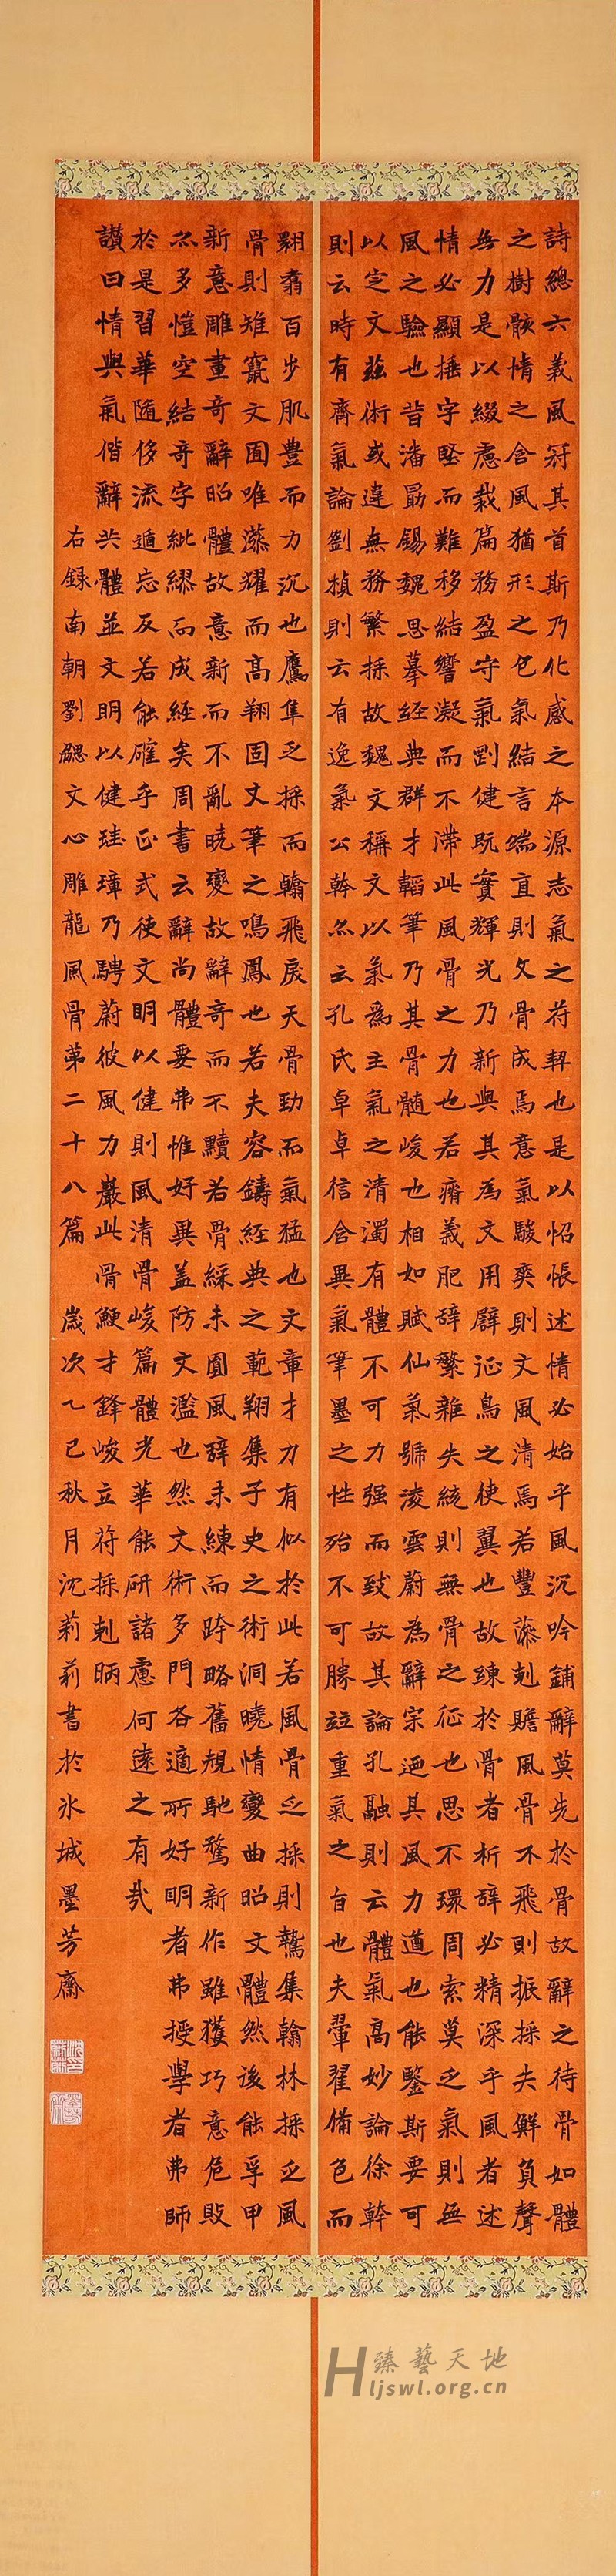 詩總六義風冠其首斯乃化感之本源志氣之符契也是以怊悵述情必始乎風沉吟鋪辭莫先於骨故辭之待骨如體
之樹骸情之含風猶形之包氣結言端直則文骨成焉意氣駿爽則文風清焉若豐藻剋贍風骨不飛則振採失鮮負聲
無力是以綴慮裁篇務盈守氣剛健既實輝光乃新與其為文用辟征鳥之使翼也故練於骨者析辭必精深乎風者述
情必顯捶字堅而難移結響凝而不滯此風骨之力也若瘠義肥辞繁雜失統則無骨之征也思不環周索莫乏氣則無
風之驗也昔潘勖錫魏思摹經典群才韜筆乃其骨髓峻也相如賦仙氣號凌雲蔚為辭宗迺其風力遒也能鑒斯要可
以定文茲術或違無務繁採故魏文稱文以氣為主氣之清濁有體不可力强而致故其論孔融則云體氣高妙論徐幹
則云時有齊氣論劉楨則云有逸氣公幹亦云孔氏卓卓信含異氣筆墨之性殆不可勝竝重氣之旨也夫翬翟備色而
翾翥百步肌豐而力沉也鷹隼乏採而翰飛戾天骨勁而氣猛也文章才力有似於此若風骨乏採則鷙集翰林採乏風
骨則雉竄文囿唯藻耀而高翔固文筆之鳴鳳也若夫容鑄經典之範翔集子史之術洞曉情變曲昭文體然後能孚甲
新意雕畫奇辭昭體故意新而不亂曉變故辭奇而不黷若骨綵未圓風辭未練而跨略舊規馳騖新作雖獲巧意危敗
亦多愷空結奇字紕繆而成經矣周書云辭尚體要弗惟好異蓋防文濫也然文術多門各適所好明者弗授學者弗師
於是習華隨侈流遁忘反若能確乎正式使文明以健則風清骨峻篇體光華能研諸慮何遠之有哉
讚曰情與氣偕辭共體並文明以健珪璋乃騁蔚彼風力嚴此骨鯁才鋒峻立符採剋昞
右錄南朝劉勰文心雕龍風骨第二十八篇 歲次乙巳秋月沈莉莉書於冰城墨芳齋
臻藝天地
Hljswl.org.cn